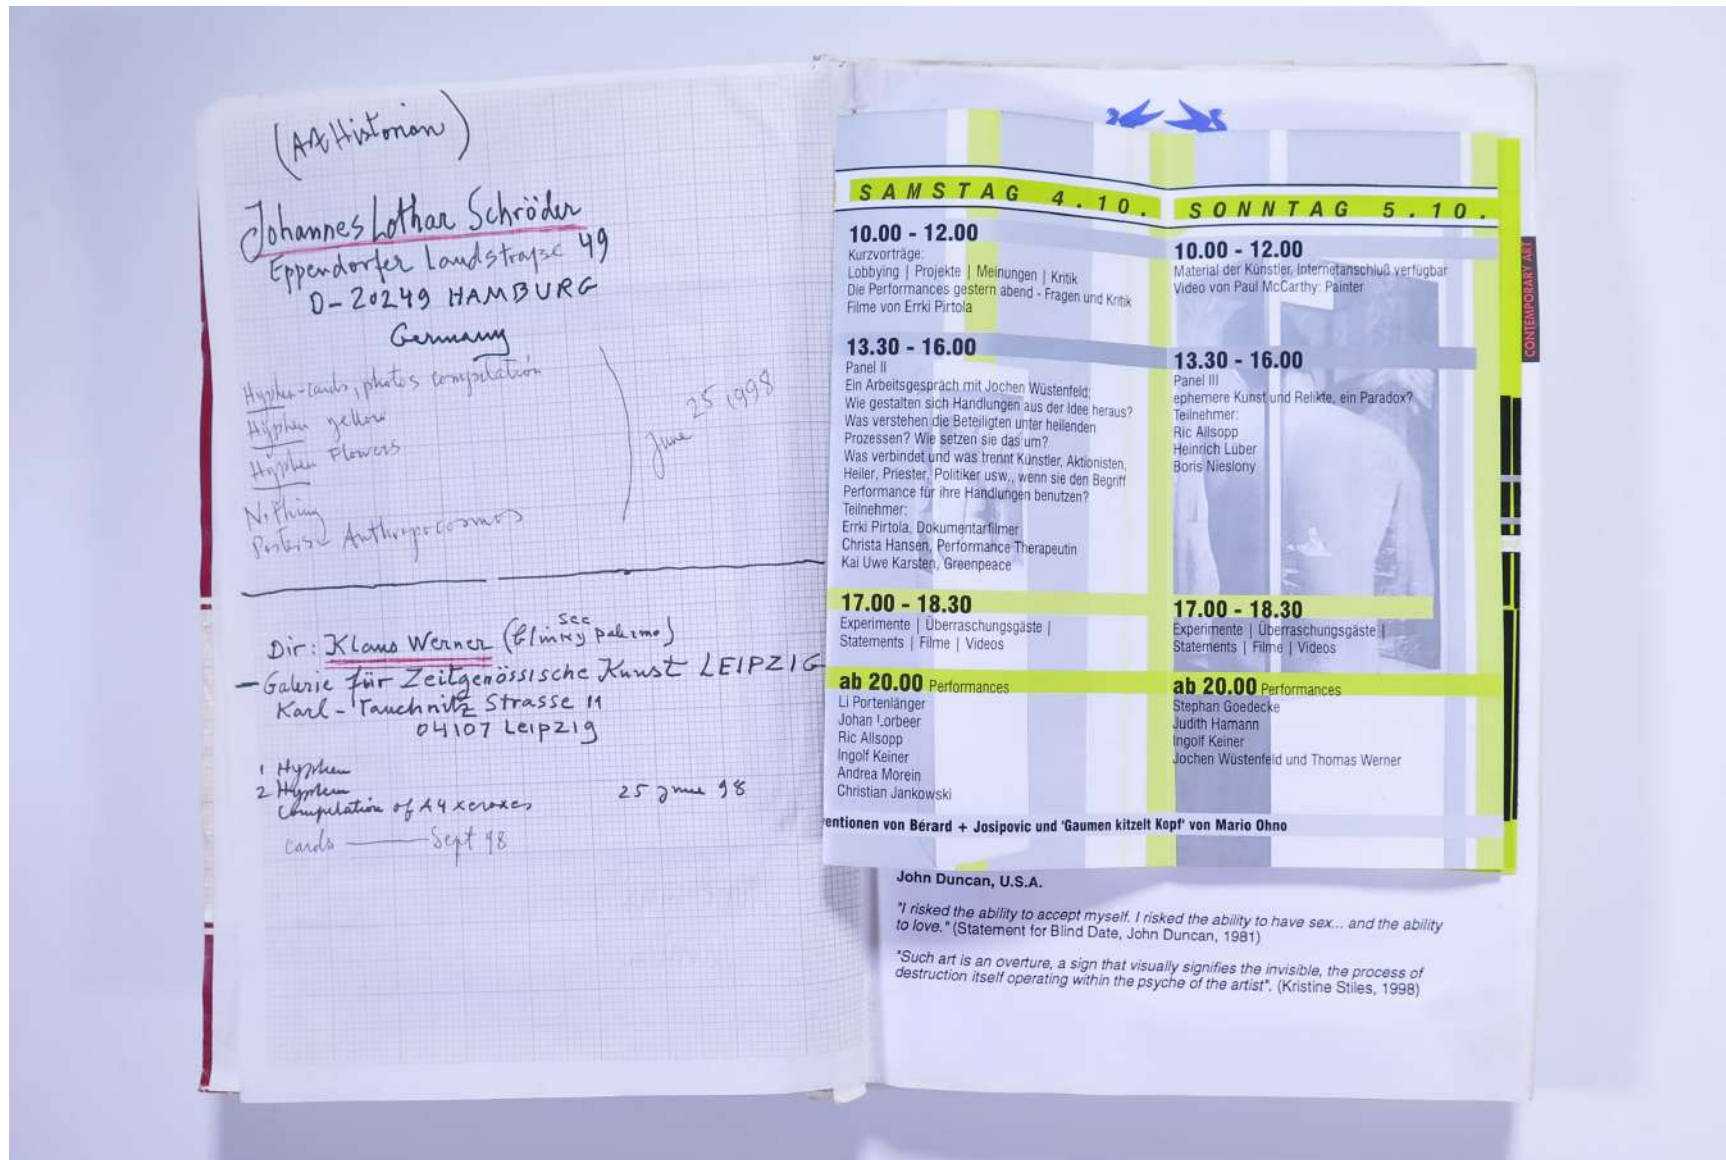 (Art Historian)
Johannes Lothar Schröder
Eppendorfer Landstraße 49
D-20249 HAMBURG
Germany
Hyphen-cards, photos compilation
Hyphen yellow
Hyphen Flowers
Nothing
Posters - Anthropocosmos
June 25 1998
Dir: Klaus Werner (see blinky palermo)
- Galerie für Zeitgenössische Kunst LEIPZIG
Karl-Tauchnitz Strasse 11
04107 Leipzig
1 Hyphen
2 Hyphen
Compilation of A4 xeroxes
25 June 98
cards — Sept 98
SAMSTAG 4.10.
10.00 - 12.00
Kurzvorträge:
Lobbying | Projekte | Meinungen | Kritik
Die Performances gestern abend - Fragen und Kritik
Filme von Errki Pirtola
13.30 - 16.00
Panel II
Ein Arbeitsgespräch mit Jochen Wüstenfeld:
Wie gestalten sich Handlungen aus der Idee heraus?
Was verstehen die Beteiligten unter heilenden
Prozessen? Wie setzen sie das um?
Was verbindet und was trennt Künstler, Aktionisten,
Heiler, Priester, Politiker usw., wenn sie den Begriff
Performance für ihre Handlungen benutzen?
Teilnehmer:
Errki Pirtola, Dokumentarfilmer
Christa Hansen, Performance Therapeutin
Kai Uwe Karsten, Greenpeace
17.00 - 18.30
Experimente | Überraschungsgäste |
Statements | Filme | Videos
ab 20.00 Performances
Li Portenlänger
Johan Lorbeer
Ric Allsopp
Ingolf Keiner
Andrea Morein
Christian Jankowski
SONNTAG 5.10.
10.00 - 12.00
Material der Künstler, Internetanschluß verfügbar
Video von Paul McCarthy: Painter
13.30 - 16.00
Panel III
ephemere Kunst und Relikte, ein Paradox?
Teilnehmer:
Ric Allsopp
Heinrich Lüber
Boris Nieslony
17.00 - 18.30
Experimente | Überraschungsgäste |
Statements | Filme | Videos
ab 20.00 Performances
Stephan Goedecke
Judith Hamann
Ingolf Keiner
Jochen Wüstenfeld und Thomas Werner
entionen von Bérard + Josipovic und 'Gaumen kitzelt Kopf' von Mario Ohno
CONTEMPORARY ART
John Duncan, U.S.A.
"I risked the ability to accept myself. I risked the ability to have sex... and the ability
to love." (Statement for Blind Date, John Duncan, 1981)
"Such art is an overture, a sign that visually signifies the invisible, the process of
destruction itself operating within the psyche of the artist". (Kristine Stiles, 1998)